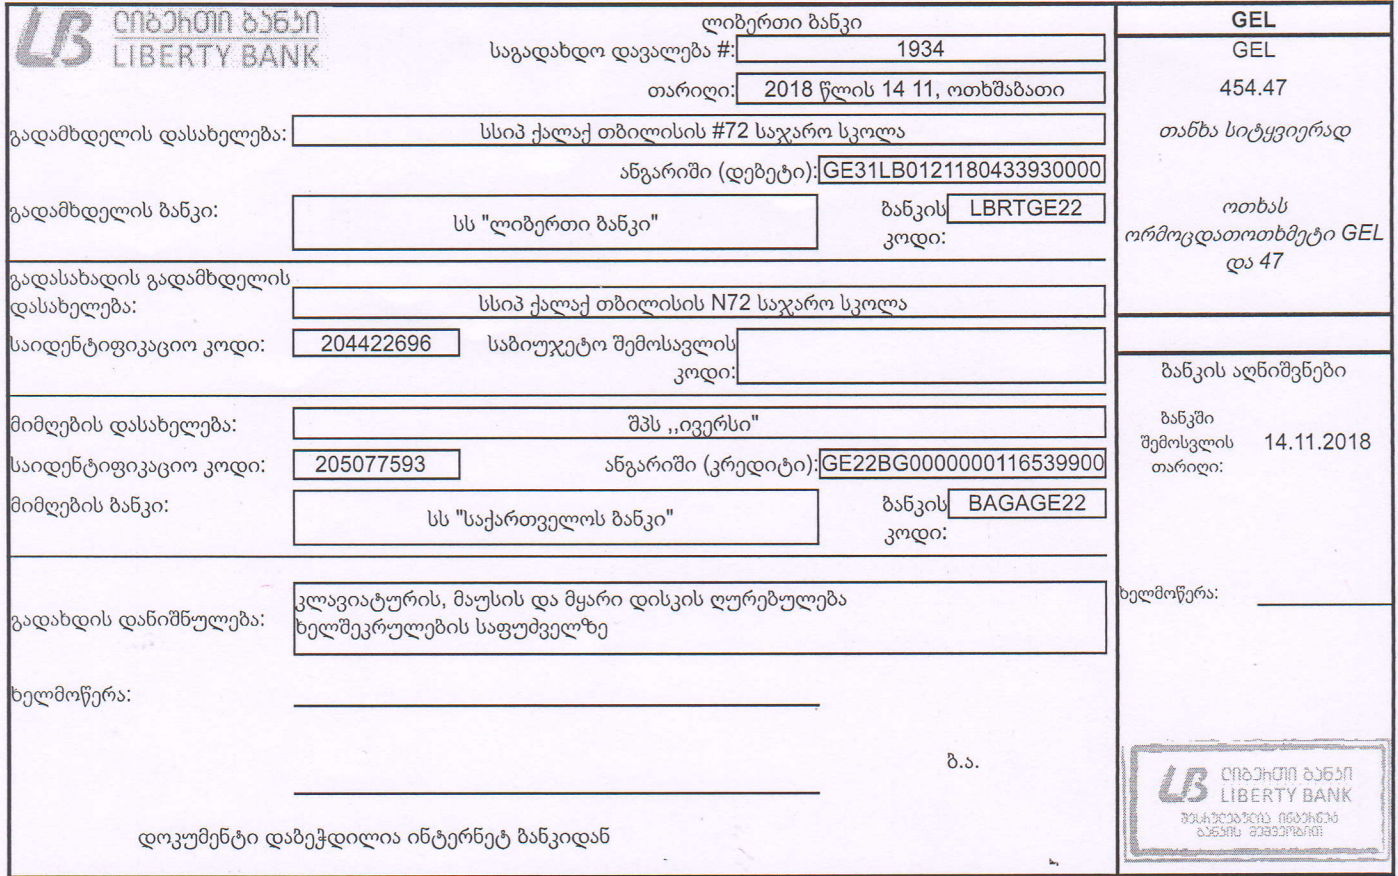 ლიბერთი ბანკი
LIBERTY BANK
ლიბერთი ბანკი
საგადახდო დავალება #: 1934
თარიღი: 2018 წლის 14 11, ოთხშაბათი
გადამხდელის დასახელება: სსიპ ქალაქ თბილისის #72 საჯარო სკოლა
ანგარიში (დებეტი): GE31LB0121180433930000
გადამხდელის ბანკი: სს "ლიბერთი ბანკი" ბანკის კოდი: LBRTGE22
გადასახადის გადამხდელის
დასახელება: სსიპ ქალაქ თბილისის N72 საჯარო სკოლა
საიდენტიფიკაციო კოდი: 204422696 საბიუჯეტო შემოსავლის
კოდი:
მიმღების დასახელება: შპს ,,ივერსი"
საიდენტიფიკაციო კოდი: 205077593 ანგარიში (კრედიტი): GE22BG0000000116539900
მიმღების ბანკი: სს "საქართველოს ბანკი" ბანკის კოდი: BAGAGE22
გადახდის დანიშნულება: კლავიატურის, მაუსის და მყარი დისკის ღურებულება
ხელშეკრულების საფუძველზე
ხელმოწერა:
ბ.ა.
დოკუმენტი დაბეჭდილია ინტერნეტ ბანკიდან
GEL
GEL
454.47
თანხა სიტყვიერად
ოთხას
ორმოცდათოთხმეტი GEL
და 47
ბანკის აღნიშვნები
ბანკში
შემოსვლის 14.11.2018
თარიღი:
ხელმოწერა:
LB ლიბერთი ბანკი
LIBERTY BANK
შესრულებულია ინტერნეტ
ბანკის მეშვეობით